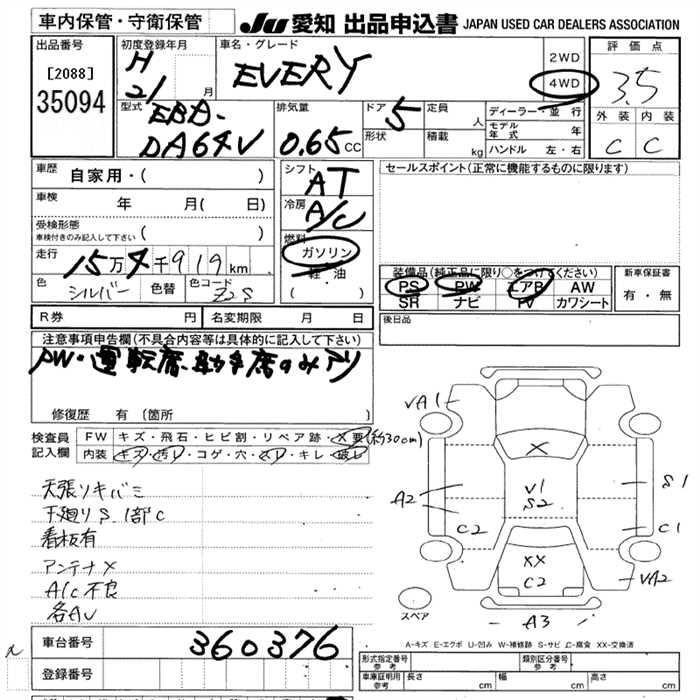 車内保管・守衛保管
JU 愛知 出品申込書 JAPAN USED CAR DEALERS ASSOCIATION
出品番号
[2088]
35094
初度登録年月
H
21 月
車名・グレード
EVERY
2WD
4WD
評価点
3.5
外装 内装
C C
型式
EBD-
DA64V
排気量
0.65 CC
ドア 5
形状
定員 人
積載 kg
ディーラー・並行
モデル年式 年
ハンドル 左・右
車歴
自家用・( )
車検 年 月( 日)
受検形態
車検付きのみ記入して下さい ( )
走行 15万4千919km
色 シルバー 色替 色コード Z2S
シフト AT
冷房 A/C
燃料
ガソリン
軽油
( )
セールスポイント(正常に機能するものに限ります)
装備品(純正品に限り○をつけてください)
PS PW エアB AW
SR ナビ TV カワシート
新車保証書
有・無
R券 円 名変期限 月 日
後日品
注意事項申告欄(不具合内容等は具体的に記入して下さい)
PW・運転席、助手席のみアリ
修復歴 有 (箇所 )
検査員記入欄
FW キズ・飛石・ヒビ割・リペア跡・X要(約30cm)
内装 キズ・汚レ・コゲ・穴・スレ・キレ・破レ
天張リキバミ
下廻りS、1部C
看板有
アンテナX
A/C不良
各AU
VA1
X
V1
S2
A2
C2
S1
C1
XX
C2
VA2
A3
スペア
A-キズ E-エクボ U-凹み W-補修跡 S-サビ C-腐食 XX-交換済
車台番号 360376
登録番号
形式指定番号 参考
類別区分番号 参考
車庫証明用 参考 長さ cm 幅 cm 高さ cm